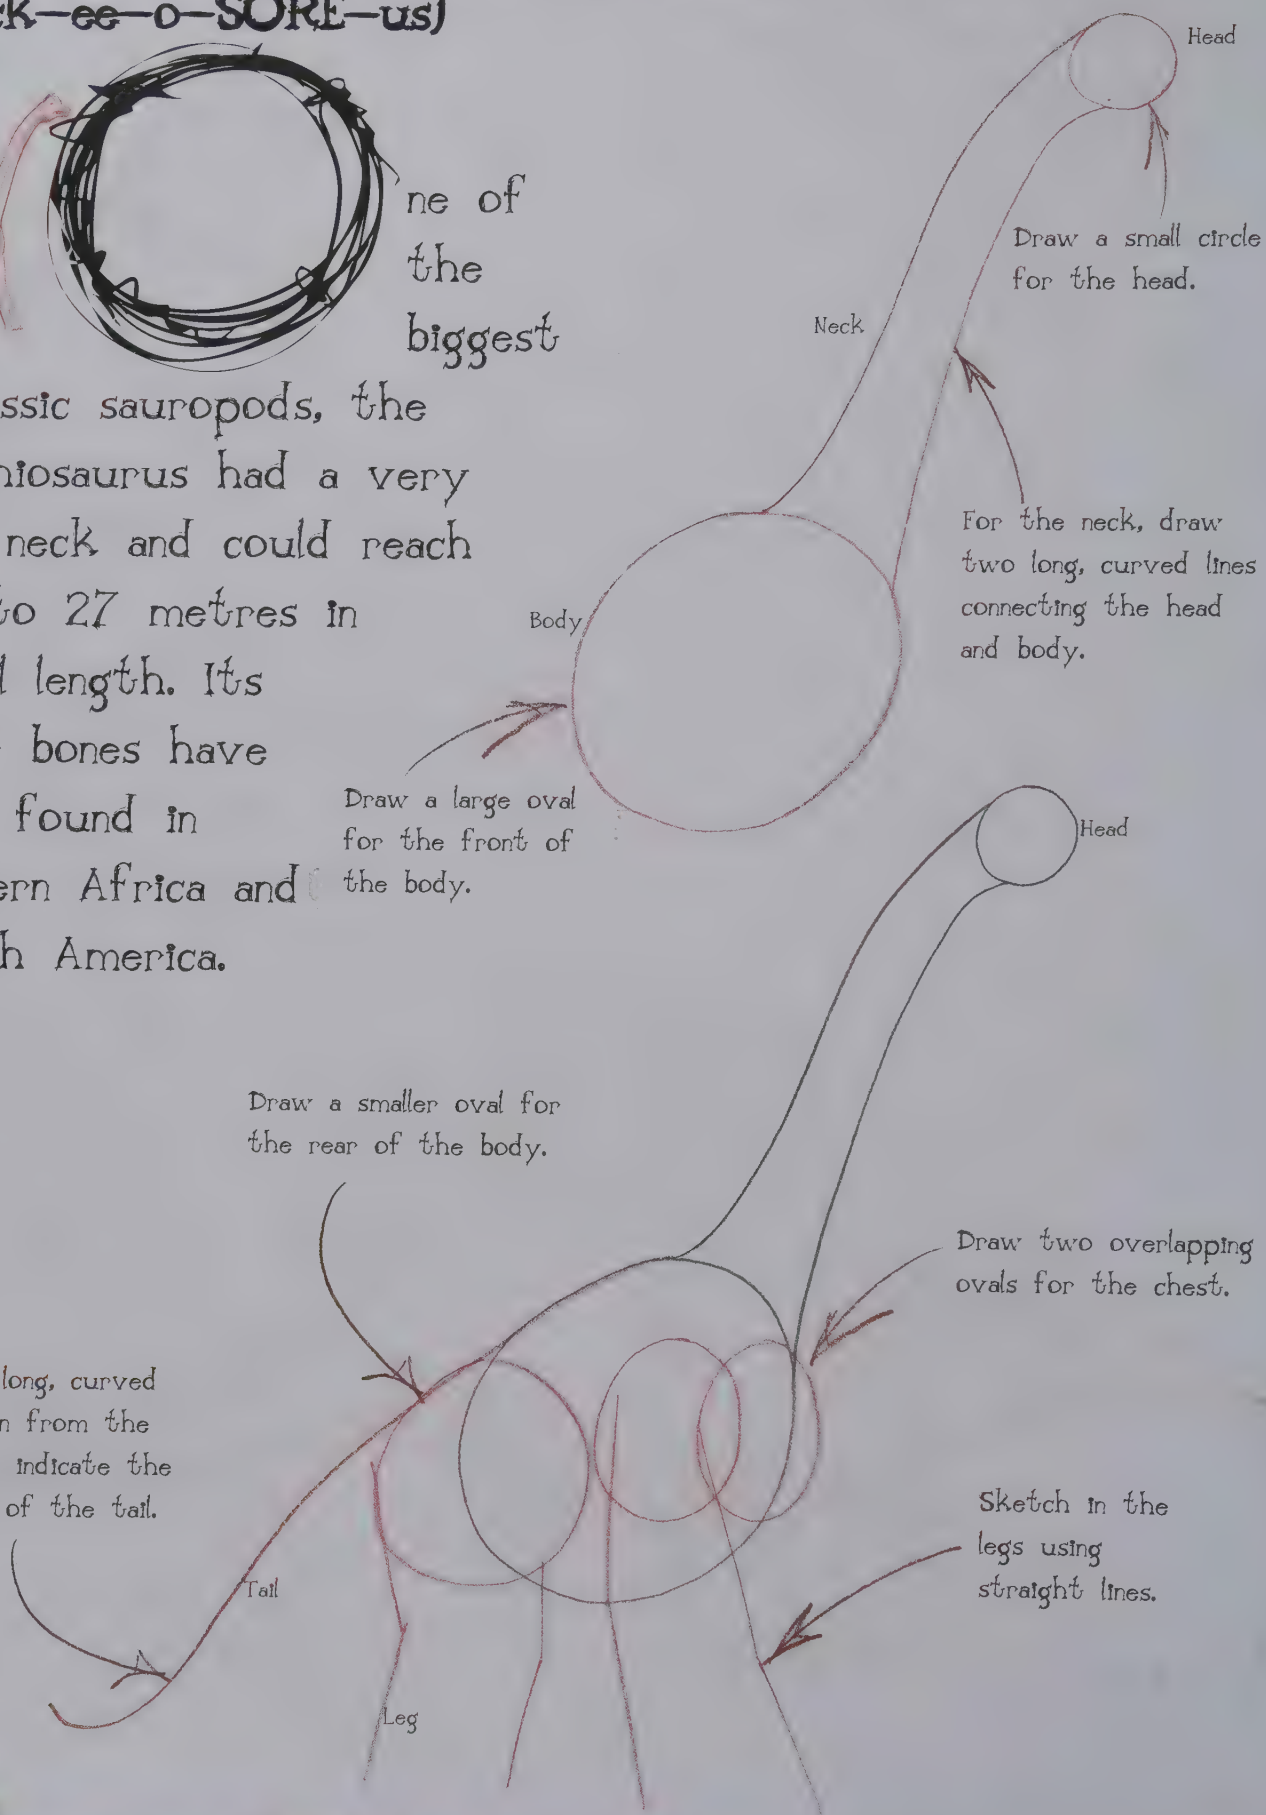 ck-ee-o-SORE-us)
One of
the
biggest
ssic sauropods, the
hiosaurus had a very
neck and could reach
to 27 metres in
l length. Its
bones have
found in
ern Africa and
h America.
Head
Draw a small circle
for the head.
Neck
For the neck, draw
two long, curved lines
connecting the head
and body.
Body
Draw a large oval
for the front of
the body.
Head
Draw a smaller oval for
the rear of the body.
Draw two overlapping
ovals for the chest.
long, curved
n from the
indicate the
of the tail.
Tail
Sketch in the
legs using
straight lines.
Leg